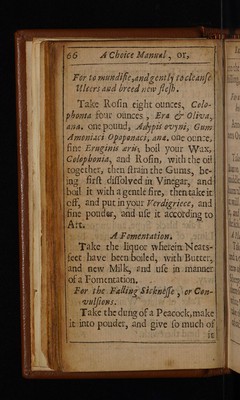 66 A Choice Manual, or,
For to mundifie, and gently to cleanse
Ulcers and breed new flesh.
Take Rosin eight ounces, Colo-
phonia four ounces, Era & Oliva,
ana. one pound, Adypis ovyni, Gum
Amoniaci Opoponaci, ana. one ounce,
fine Eruginis aris, boil your Wax,
Colophonia, and Rosin, with the oil
together, then strain the Gums, be-
ing first dissolved in Vinegar, and
boil it with a gentle fire, then take it
off, and put in your Verdigriece, and
fine pouder, and use it according to
Art.
A Fomentation.
Take the liquor wherein Neats-
feet have been boiled, with Butter,
and new Milk, and use in manner
of a Fomentation.
For the Falling Sicknesse, or Con-
vulsions.
Take the dung of a Peacock, make
it into pouder, and give so much of
it